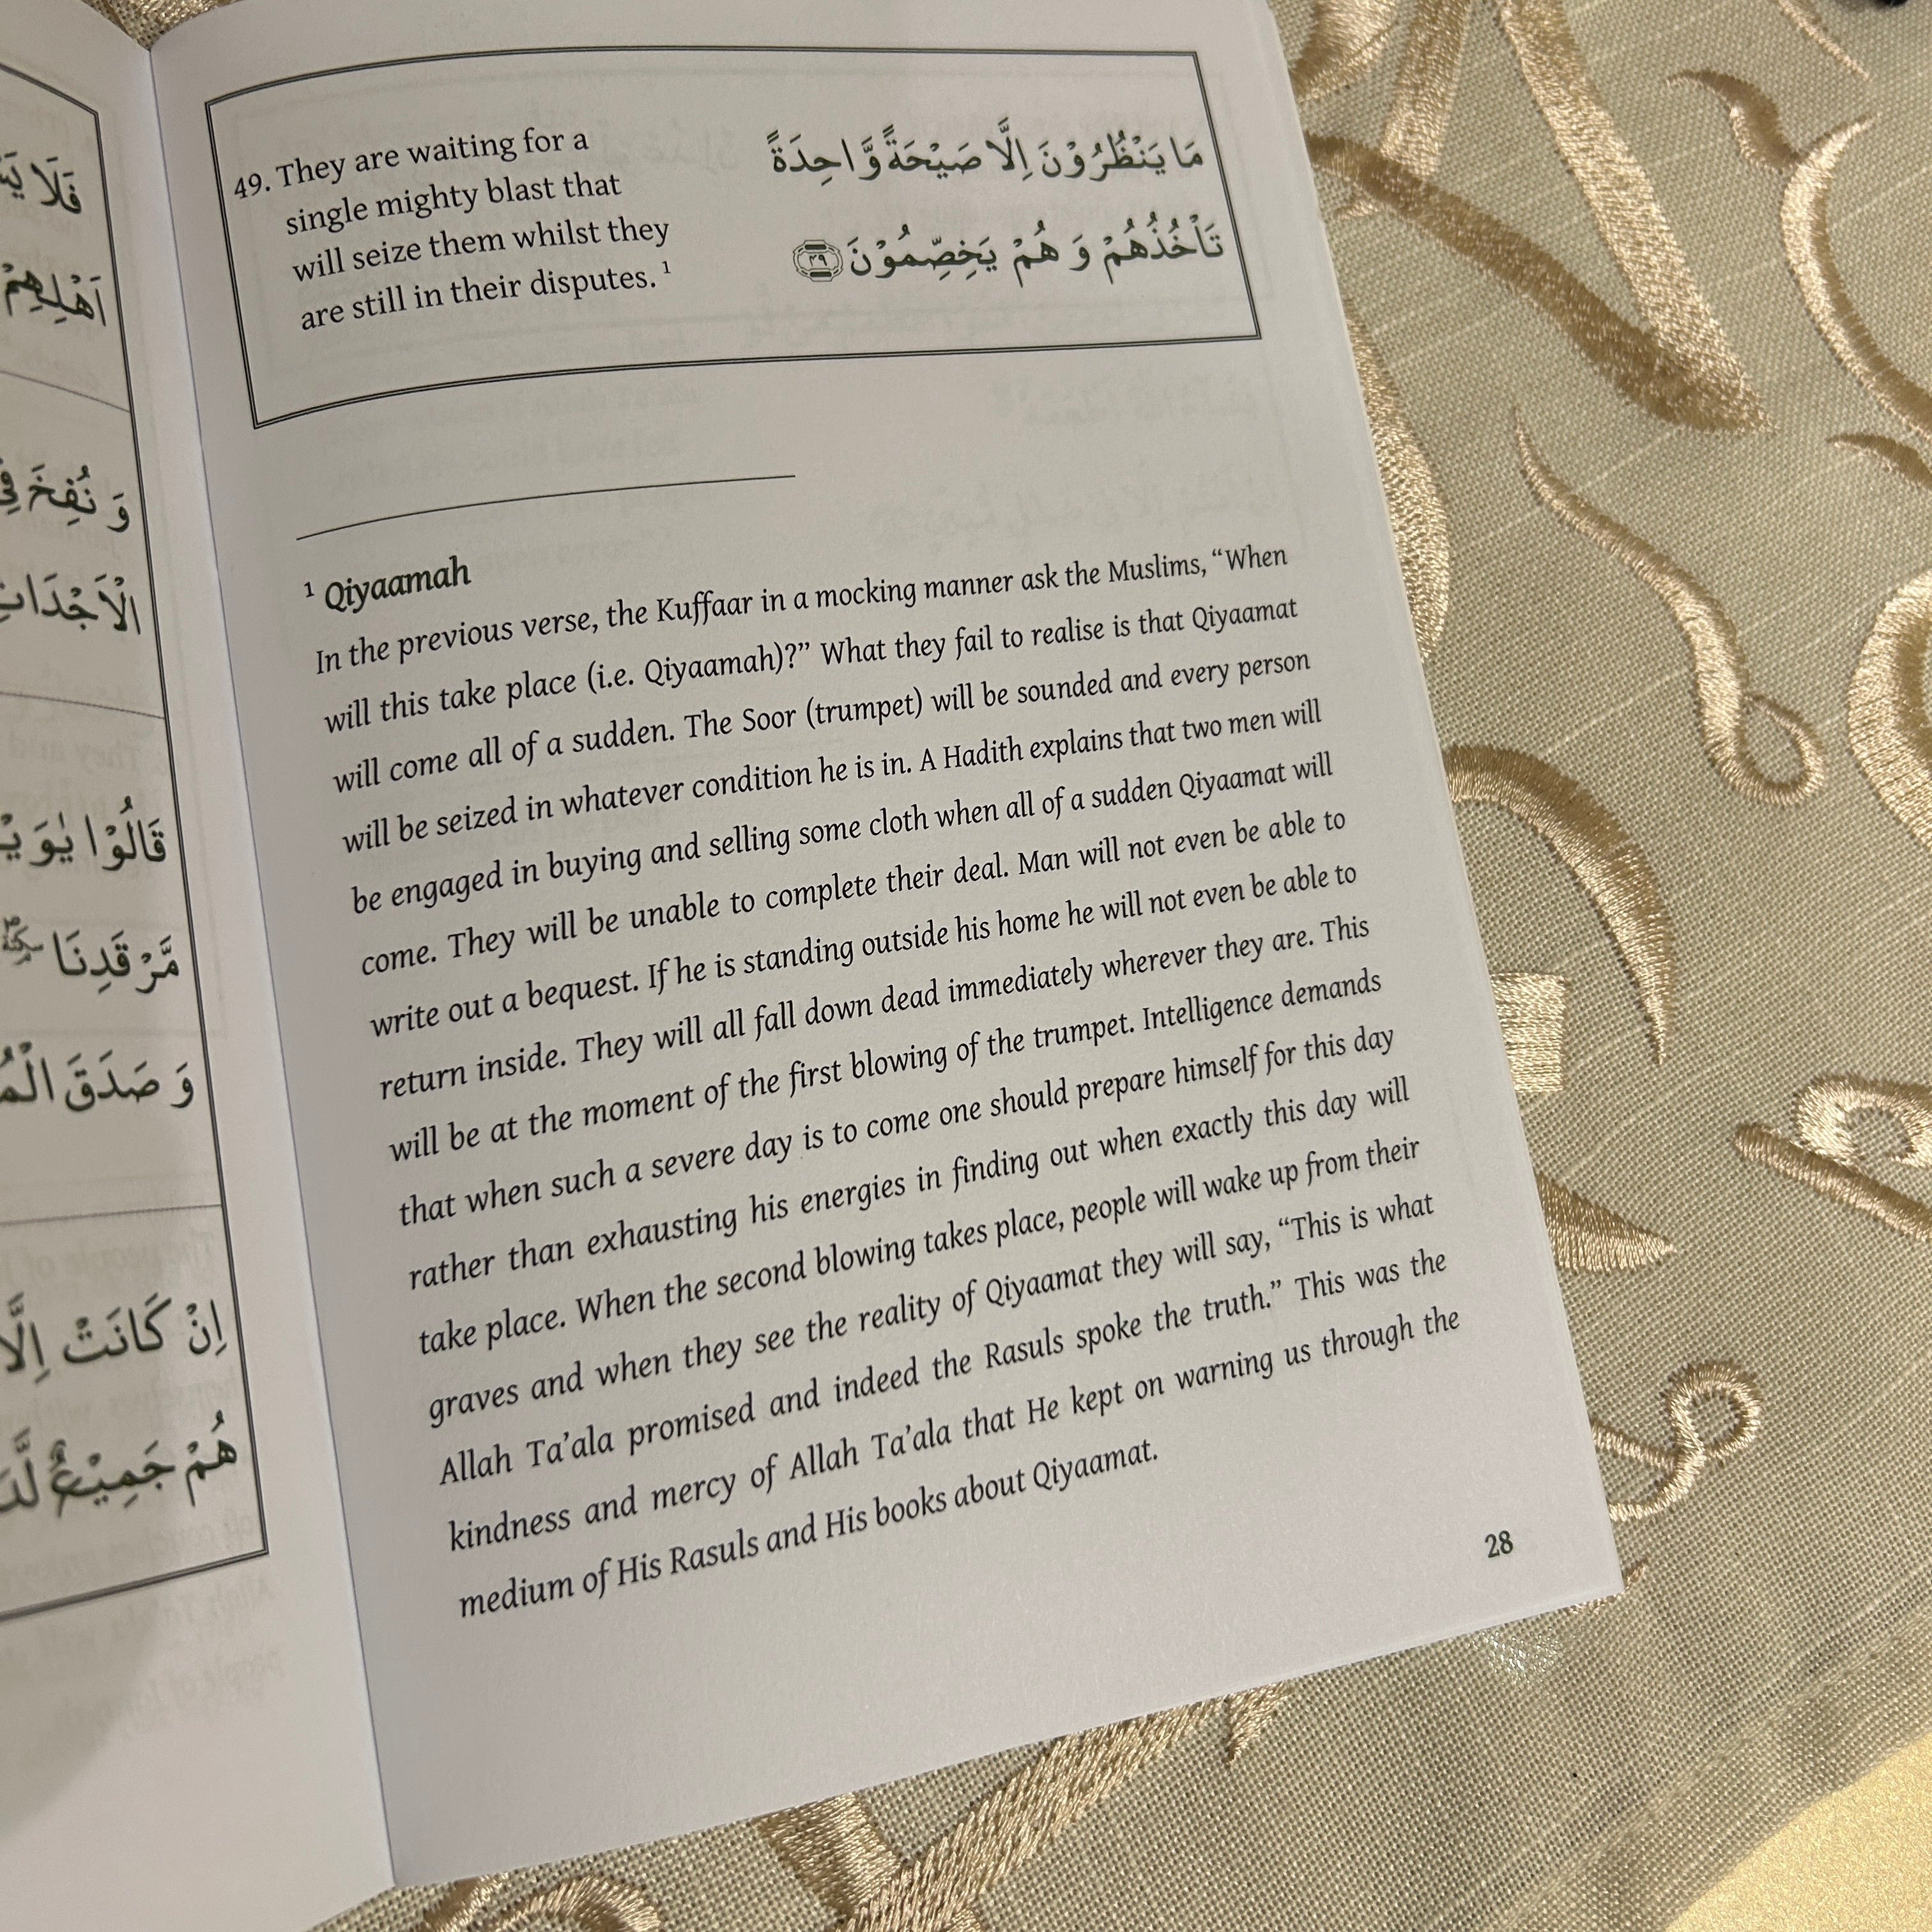 49. They are waiting for a
single mighty blast that
will seize them whilst they
are still in their disputes. ¹
مَا يَنْظُرُوْنَ اِلَّا صَيْحَةً وَّاحِدَةً
تَاْخُذُهُمْ وَ هُمْ يَخِصِّمُوْنَ ﴿۴۹﴾
¹ Qiyaamah
In the previous verse, the Kuffaar in a mocking manner ask the Muslims, “When
will this take place (i.e. Qiyaamah)?” What they fail to realise is that Qiyaamat
will come all of a sudden. The Soor (trumpet) will be sounded and every person
will be seized in whatever condition he is in. A Hadith explains that two men will
be engaged in buying and selling some cloth when all of a sudden Qiyaamat will
come. They will be unable to complete their deal. Man will not even be able to
write out a bequest. If he is standing outside his home he will not even be able to
return inside. They will all fall down dead immediately wherever they are. This
will be at the moment of the first blowing of the trumpet. Intelligence demands
that when such a severe day is to come one should prepare himself for this day
rather than exhausting his energies in finding out when exactly this day will
take place. When the second blowing takes place, people will wake up from their
graves and when they see the reality of Qiyaamat they will say, “This is what
Allah Ta’ala promised and indeed the Rasuls spoke the truth.” This was the
kindness and mercy of Allah Ta’ala that He kept on warning us through the
medium of His Rasuls and His books about Qiyaamat.
28
فَلَا
اَهْلِهِمْ
وَ نُفِخَ فِي
الْاَجْدَاثِ
قَالُوْا
مَّرْقَدِنَا
وَ صَدَقَ
اِنْ كَانَتْ اِلَّا
هُمْ جَمِيْعٌ